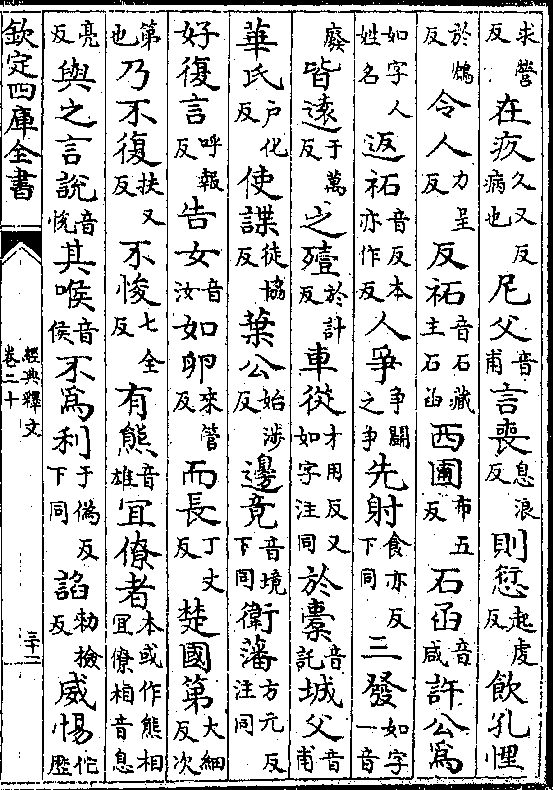 求營反在疚久又反病也尼父音甫言喪息浪反則愆起虔反飲孔悝
於鴆反令人力呈反反祏音石藏主石函西圃布五反石函音咸許公爲
如字人姓名返祏音反本亦作反人爭爭鬬之爭先射食亦反下同三發如字一音
廢皆遠于萬反之殪於計反車從才用反又如字注同於橐音託城父音甫
華氏户化反使諜徒協反葉公始涉反邊竟音境下同衛藩方元反注同
好復言呼報反告女音汝如卵來管反而長丁丈反楚國第大細反次
第也乃不復扶又反不悛七全反有熊音雄宜僚者本或作熊相宜僚相音息
亮反與之言說音悅其喉音侯不爲利于僞反下同諂勑檢反威惕佗歷
欽定四庫全書
經典釋文
卷二十
三十二